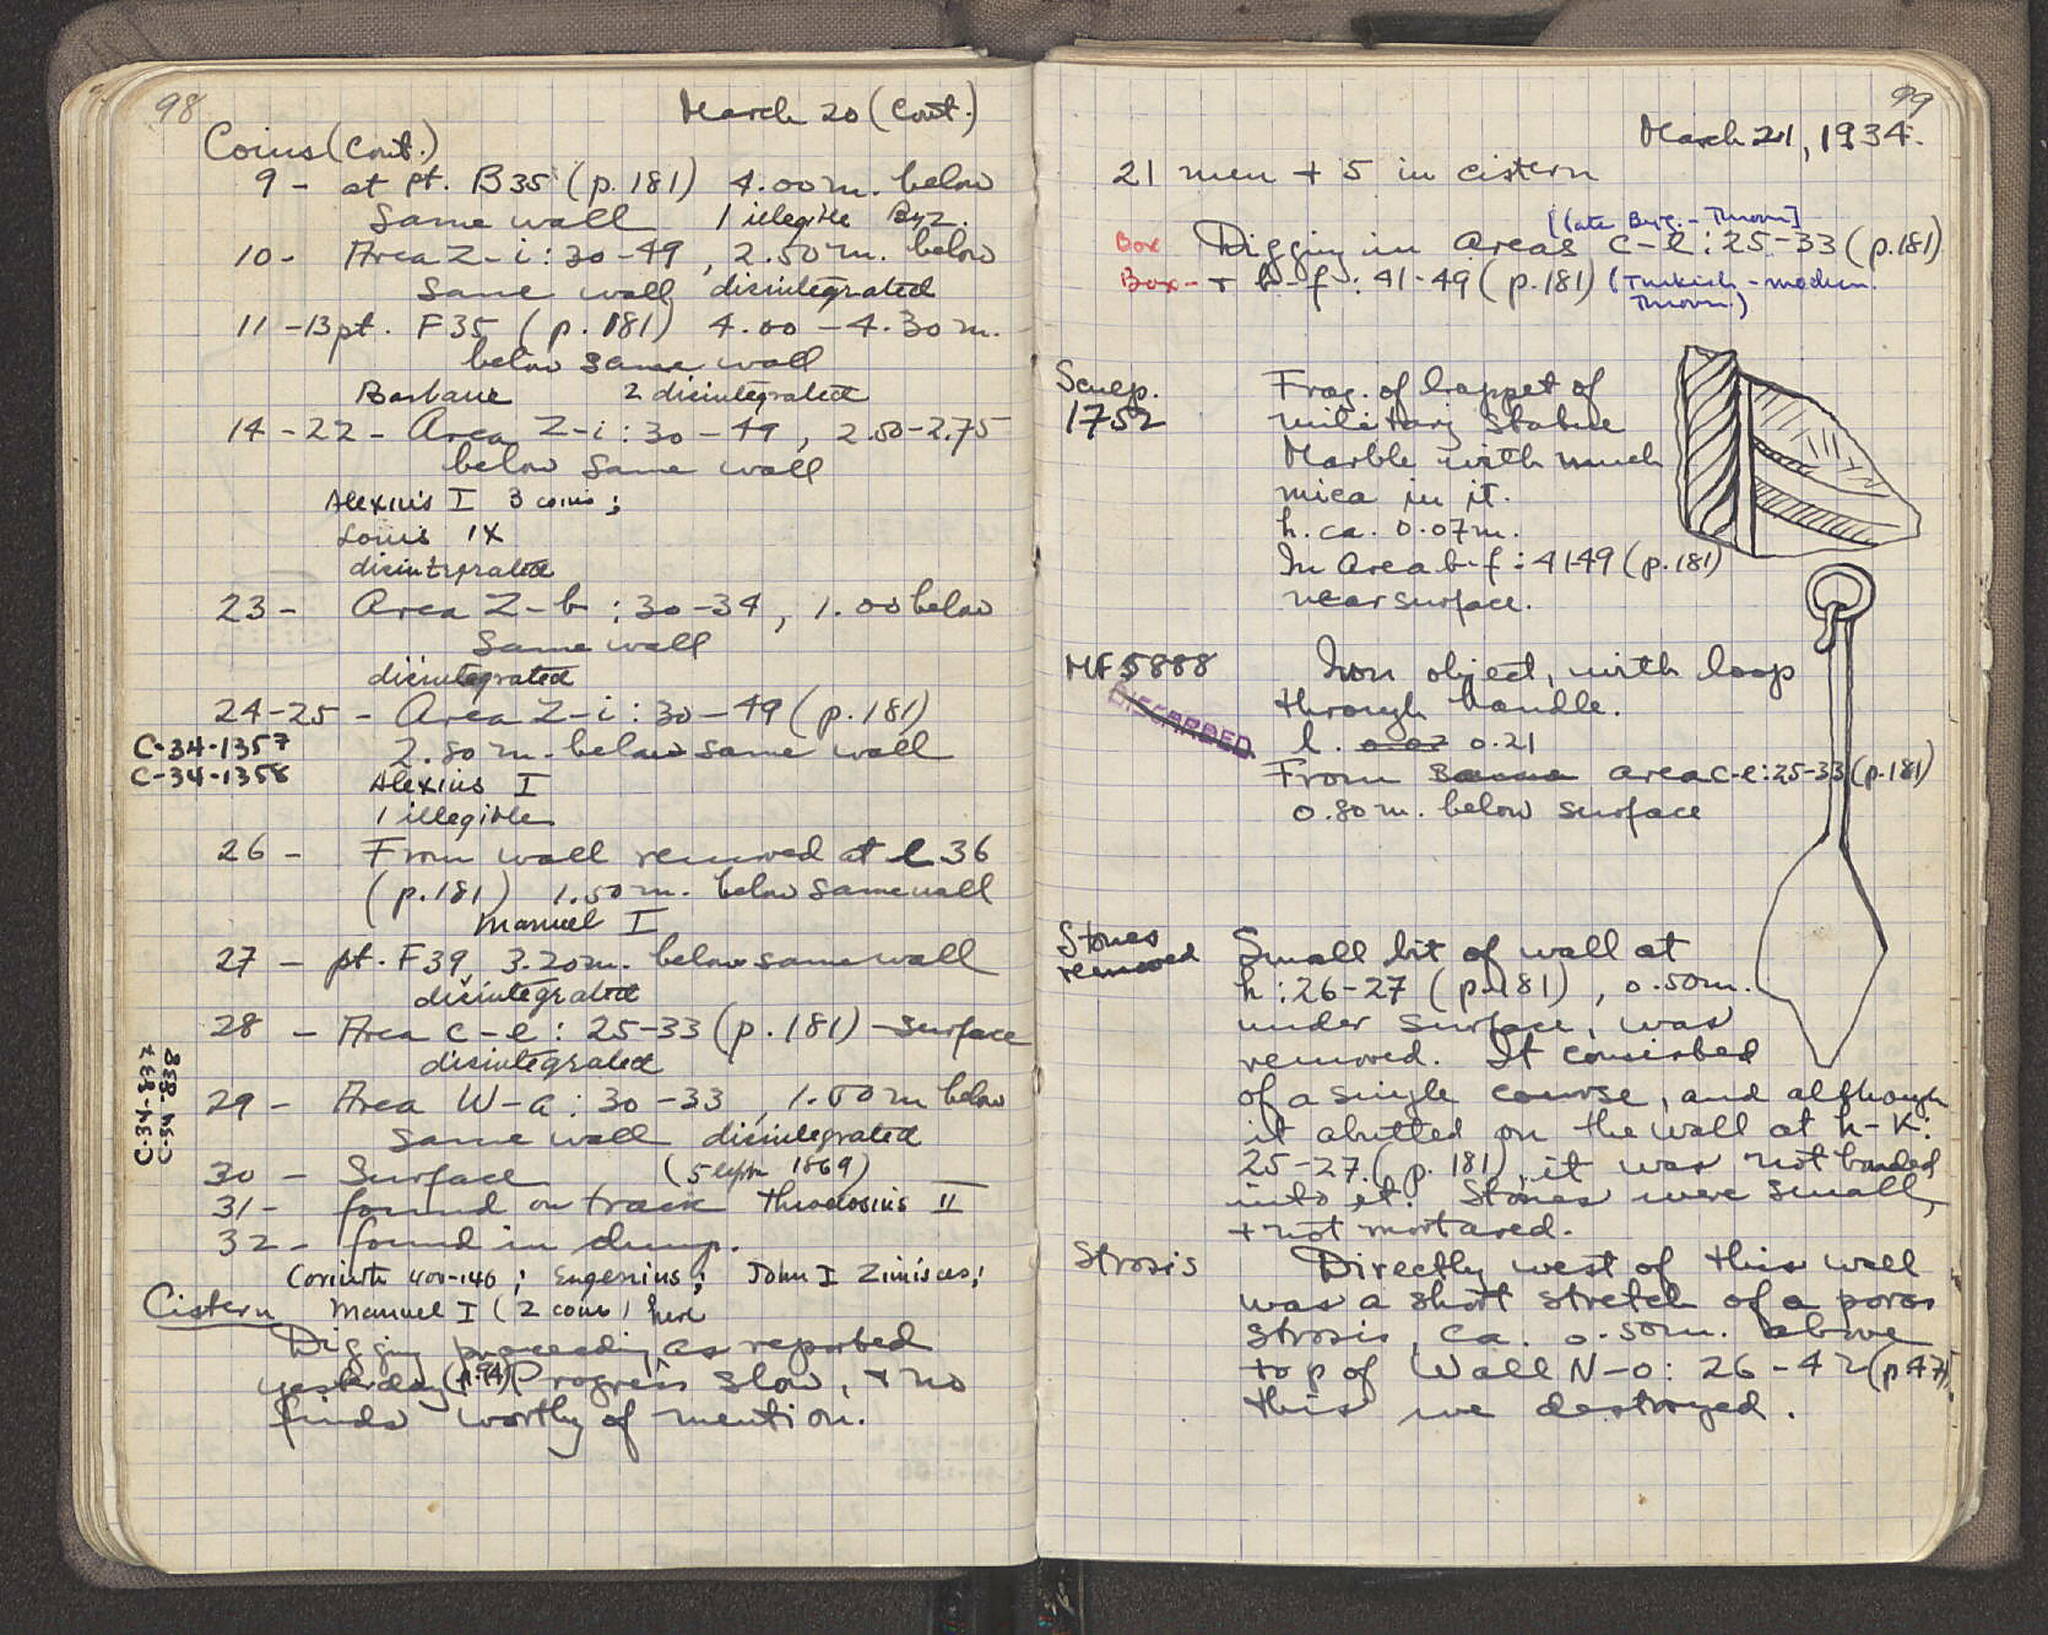 98
March 20 (Cont.)
Coins (Cont.)
9 - at pt. B35 (p.181) 4.00 m. below
same wall 1 illegible Byz.
10 - Area Z-i: 30-49, 2.50 m. below
same wall disintegrated
11-13 pt. F35 (p. 181) 4.00 - 4.30 m.
below same wall
2 disintegrated
14-22 - Area Z-i: 30-49, 2.50-2.75
below same wall
Alexius I 3 coins;
Louis IX
disintegrated
23 - Area Z-b: 30-34, 1.00 below
same wall
disintegrated
24-25 - Area Z-i: 30-49 (p.181)
C-34-1357
2.80 m. below same wall
C-34-1358
Alexius I
1 illegible
26 - From wall removed at e 36
(p.181) 1.50 m. below same wall
Manuel I
27 - pt. F39, 3.20 m. below same wall
disintegrated
28 - Area c-e: 25-33 (p. 181) - surface
disintegrated
C-34-837
C-34-838
29 - Area W-a: 30-33, 1.00 m below
same wall disintegrated
30 - Surface (5 lepta 1869)
31 - found on track Theodosius II
32 - found in dump.
Corinth 400-146; Eugenius; John I Zimisces;
Manuel I (2 coins) here
Cistern
Digging proceeding as reported
yesterday (p.94) Progress slow, + no
finds worthy of mention.
99
March 21, 1934.
21 men + 5 in cistern
[late Byz. - Thrown]
Box Digging in areas c-e: 25-33 (p.181)
Box - + b-f: 41-49 (p.181) (Turkish - modern.
Thrown.)
Sculp.
1752
Frag. of lappet of
military statue
Marble with much
mica in it.
h. ca. 0.07 m.
In Area b-f: 41-49 (p.181)
near surface.
MF 5888
DISCARDED
Iron object, with loop
through handle.
l. 0.07 0.21
From area c-e: 25-33 (p.181)
0.80 m. below surface
Stones
removed
Small bit of wall at
h: 26-27 (p.181), 0.50 m.
under surface, was
removed. It consisted
of a single course, and although
it abutted on the wall at h-K:
25-27 (p. 181), it was not bonded
into it. Stones were small,
+ not mortared.
Strosis
Directly west of this wall
was a short stretch of a poros
strosis, ca. 0.50 m. above
top of Wall N-O: 26-42 (p.47),
this we destroyed.